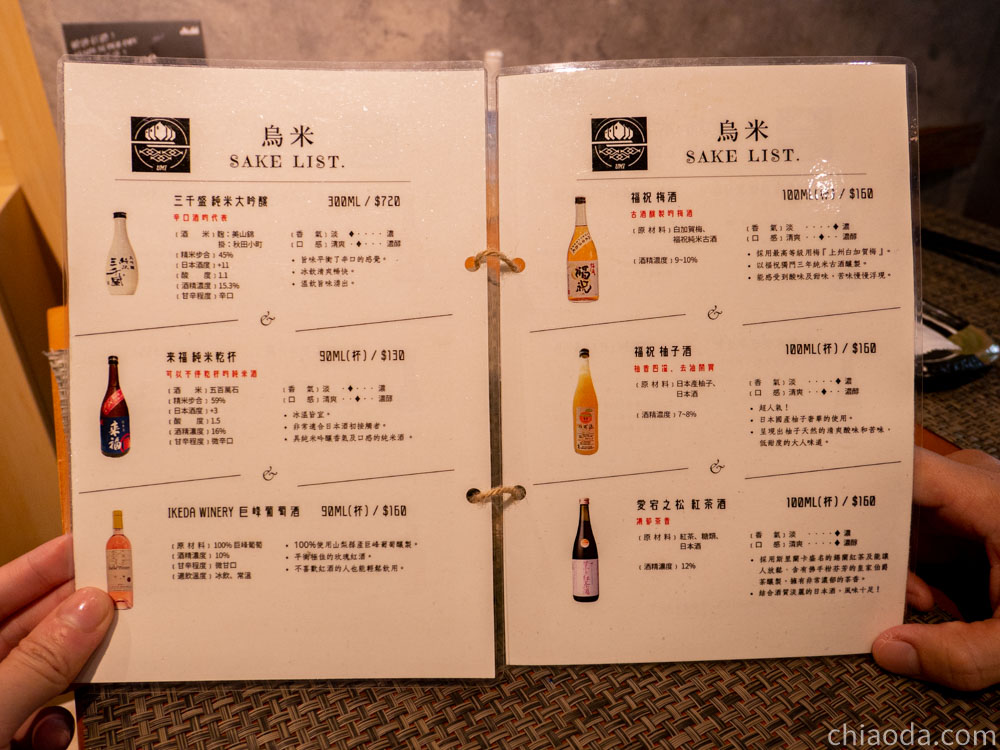 Asahi
烏米
SAKE LIST.
UMI
三千盛 純米大吟釀 300ML / $720
辛口酒的代表
( 酒 米 ) 麴:美山錦
掛:秋田小町
( 精米步合 ) 45%
( 日本酒度 ) +11
( 酸 度 ) 1.1
( 酒精濃度 ) 15.3%
( 甘辛程度 ) 辛口
( 香 氣 ) 淡 ・♦・・・・ 濃
( 口 感 ) 清爽 ♦・・・・ 濃醇
• 旨味平衡了辛口的感覺。
• 冰飲清爽暢快。
• 溫飲旨味湧出。
&
来福 純米乾杯 90ML(杯) / $130
可以不停乾杯的純米酒
( 酒 米 ) 五百萬石
( 精米步合 ) 59%
( 日本酒度 ) +3
( 酸 度 ) 1.5
( 酒精濃度 ) 16%
( 甘辛程度 ) 微辛口
( 香 氣 ) 淡 ・♦・・・ 濃
( 口 感 ) 清爽 ・♦・・ 濃醇
• 冰溫皆宜。
• 非常適合日本酒初接觸者。
• 具純米吟釀香氣及口感的純米酒。
&
IKEDA WINERY 巨峰葡萄酒 90ML(杯) / $160
( 原 材 料 ) 100% 巨峰葡萄
( 酒精濃度 ) 10%
( 甘辛程度 ) 微甘口
( 適飲溫度 ) 冰飲、常溫
• 100%使用山梨縣產巨峰葡萄釀製。
• 平衡極佳的玫瑰紅酒。
• 不喜歡紅酒的人也能輕鬆飲用。
烏米
SAKE LIST.
UMI
福祝 梅酒 100ML(杯) / $160
古酒釀製的梅酒
( 原 材 料 ) 白加賀梅、
福祝純米古酒
( 酒精濃度 ) 9~10%
( 香 氣 ) 淡 ・・・・♦ 濃
( 口 感 ) 清爽 ・・・♦・ 濃醇
• 採用最高等級用梅『上州白加賀梅』。
• 以福祝獨門三年純米古酒釀製。
• 能感受到酸味及甜味、苦味慢慢浮現。
&
福祝 柚子酒 100ML(杯) / $160
柚香四溢、去油解膩
( 原 材 料 ) 日本產柚子、
日本酒
( 酒精濃度 ) 7~8%
( 香 氣 ) 淡 ・・・♦・ 濃
( 口 感 ) 清爽 ・♦・・・ 濃醇
• 超人氣!
• 日本國產柚子奢華的使用。
• 呈現出柚子天然的清爽酸味和苦味,
低甜度的大人味道。
&
愛宕之松 紅茶酒 100ML(杯) / $160
濃郁茶香
( 原 材 料 ) 紅茶、糖類、
日本酒
( 酒精濃度 ) 12%
( 香 氣 ) 淡 ・・・・♦ 濃
( 口 感 ) 清爽 ・・・♦・ 濃醇
• 採用斯里蘭卡盛名的錫蘭紅茶及能讓
人放鬆、含有佛手柑芬芳的皇家伯爵
茶釀製,擁有非常濃郁的茶香。
• 結合酒質淡麗的日本酒,風味十足!
chiaoda.com